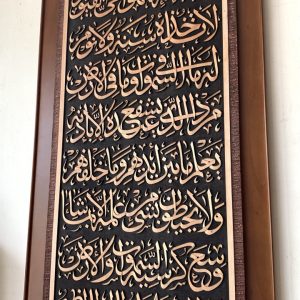 لا تأخذه سنة ولا نوم
له ما في السموات وما في الارض
من ذا الذي يشفع عنده الا باذنه
يعلم ما بين ايديهم وما خلفهم
ولا يحيطون بشيء من علمه الا بما شا
وسع كرسيه السموات والارض